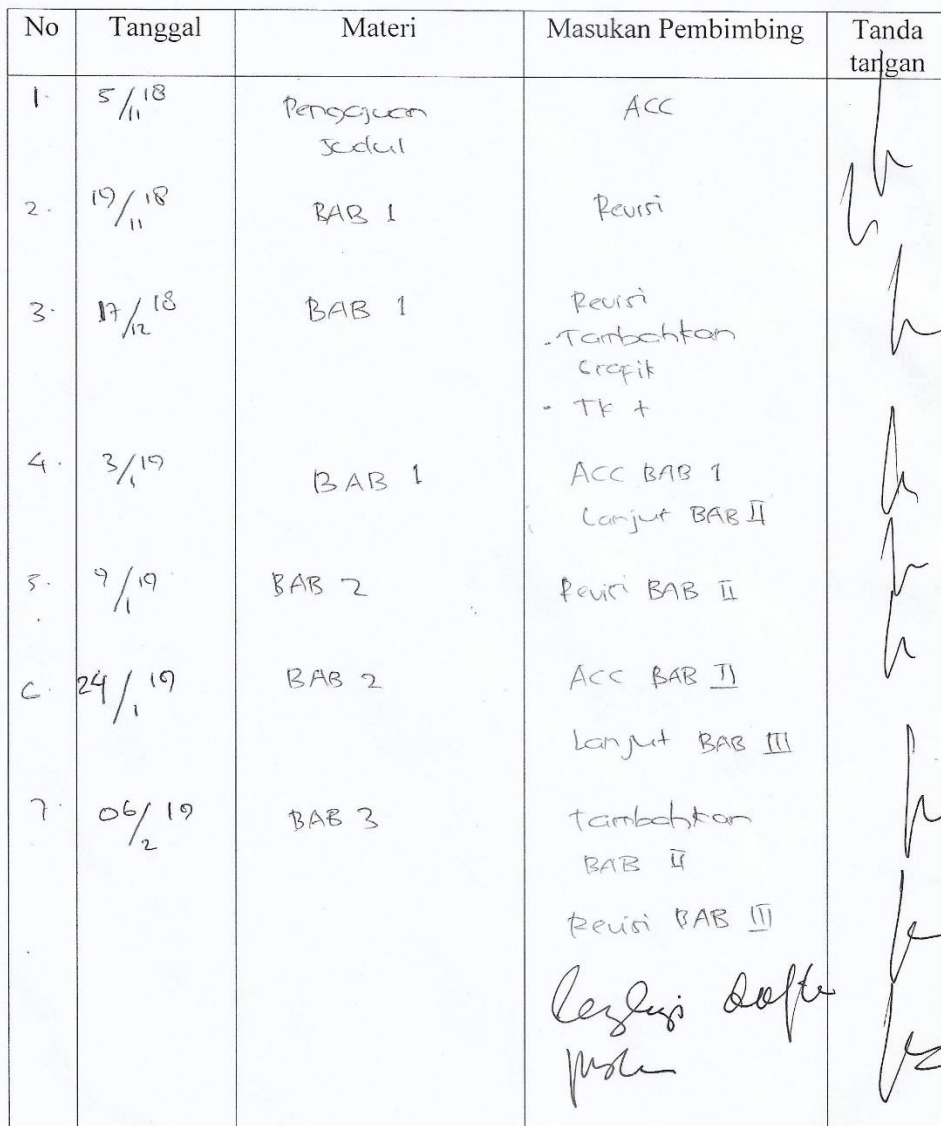 No Tanggal Materi Masukan Pembimbing Tanda
tangan
1. 5/11 18 Pengajuan ACC
Judul
2. 19/11 18 BAB 1 Revisi
3. 17/12 18 BAB 1 Revisi
- Tambahkan
Grafik
- Tk +
4. 3/1 19 BAB 1 ACC BAB 1
Lanjut BAB II
5. 9/1 19 BAB 2 Revisi BAB II
6. 24/1 19 BAB 2 ACC BAB II
Lanjut BAB III
7. 06/2 19 BAB 3 Tambahkan
BAB II
Revisi BAB III